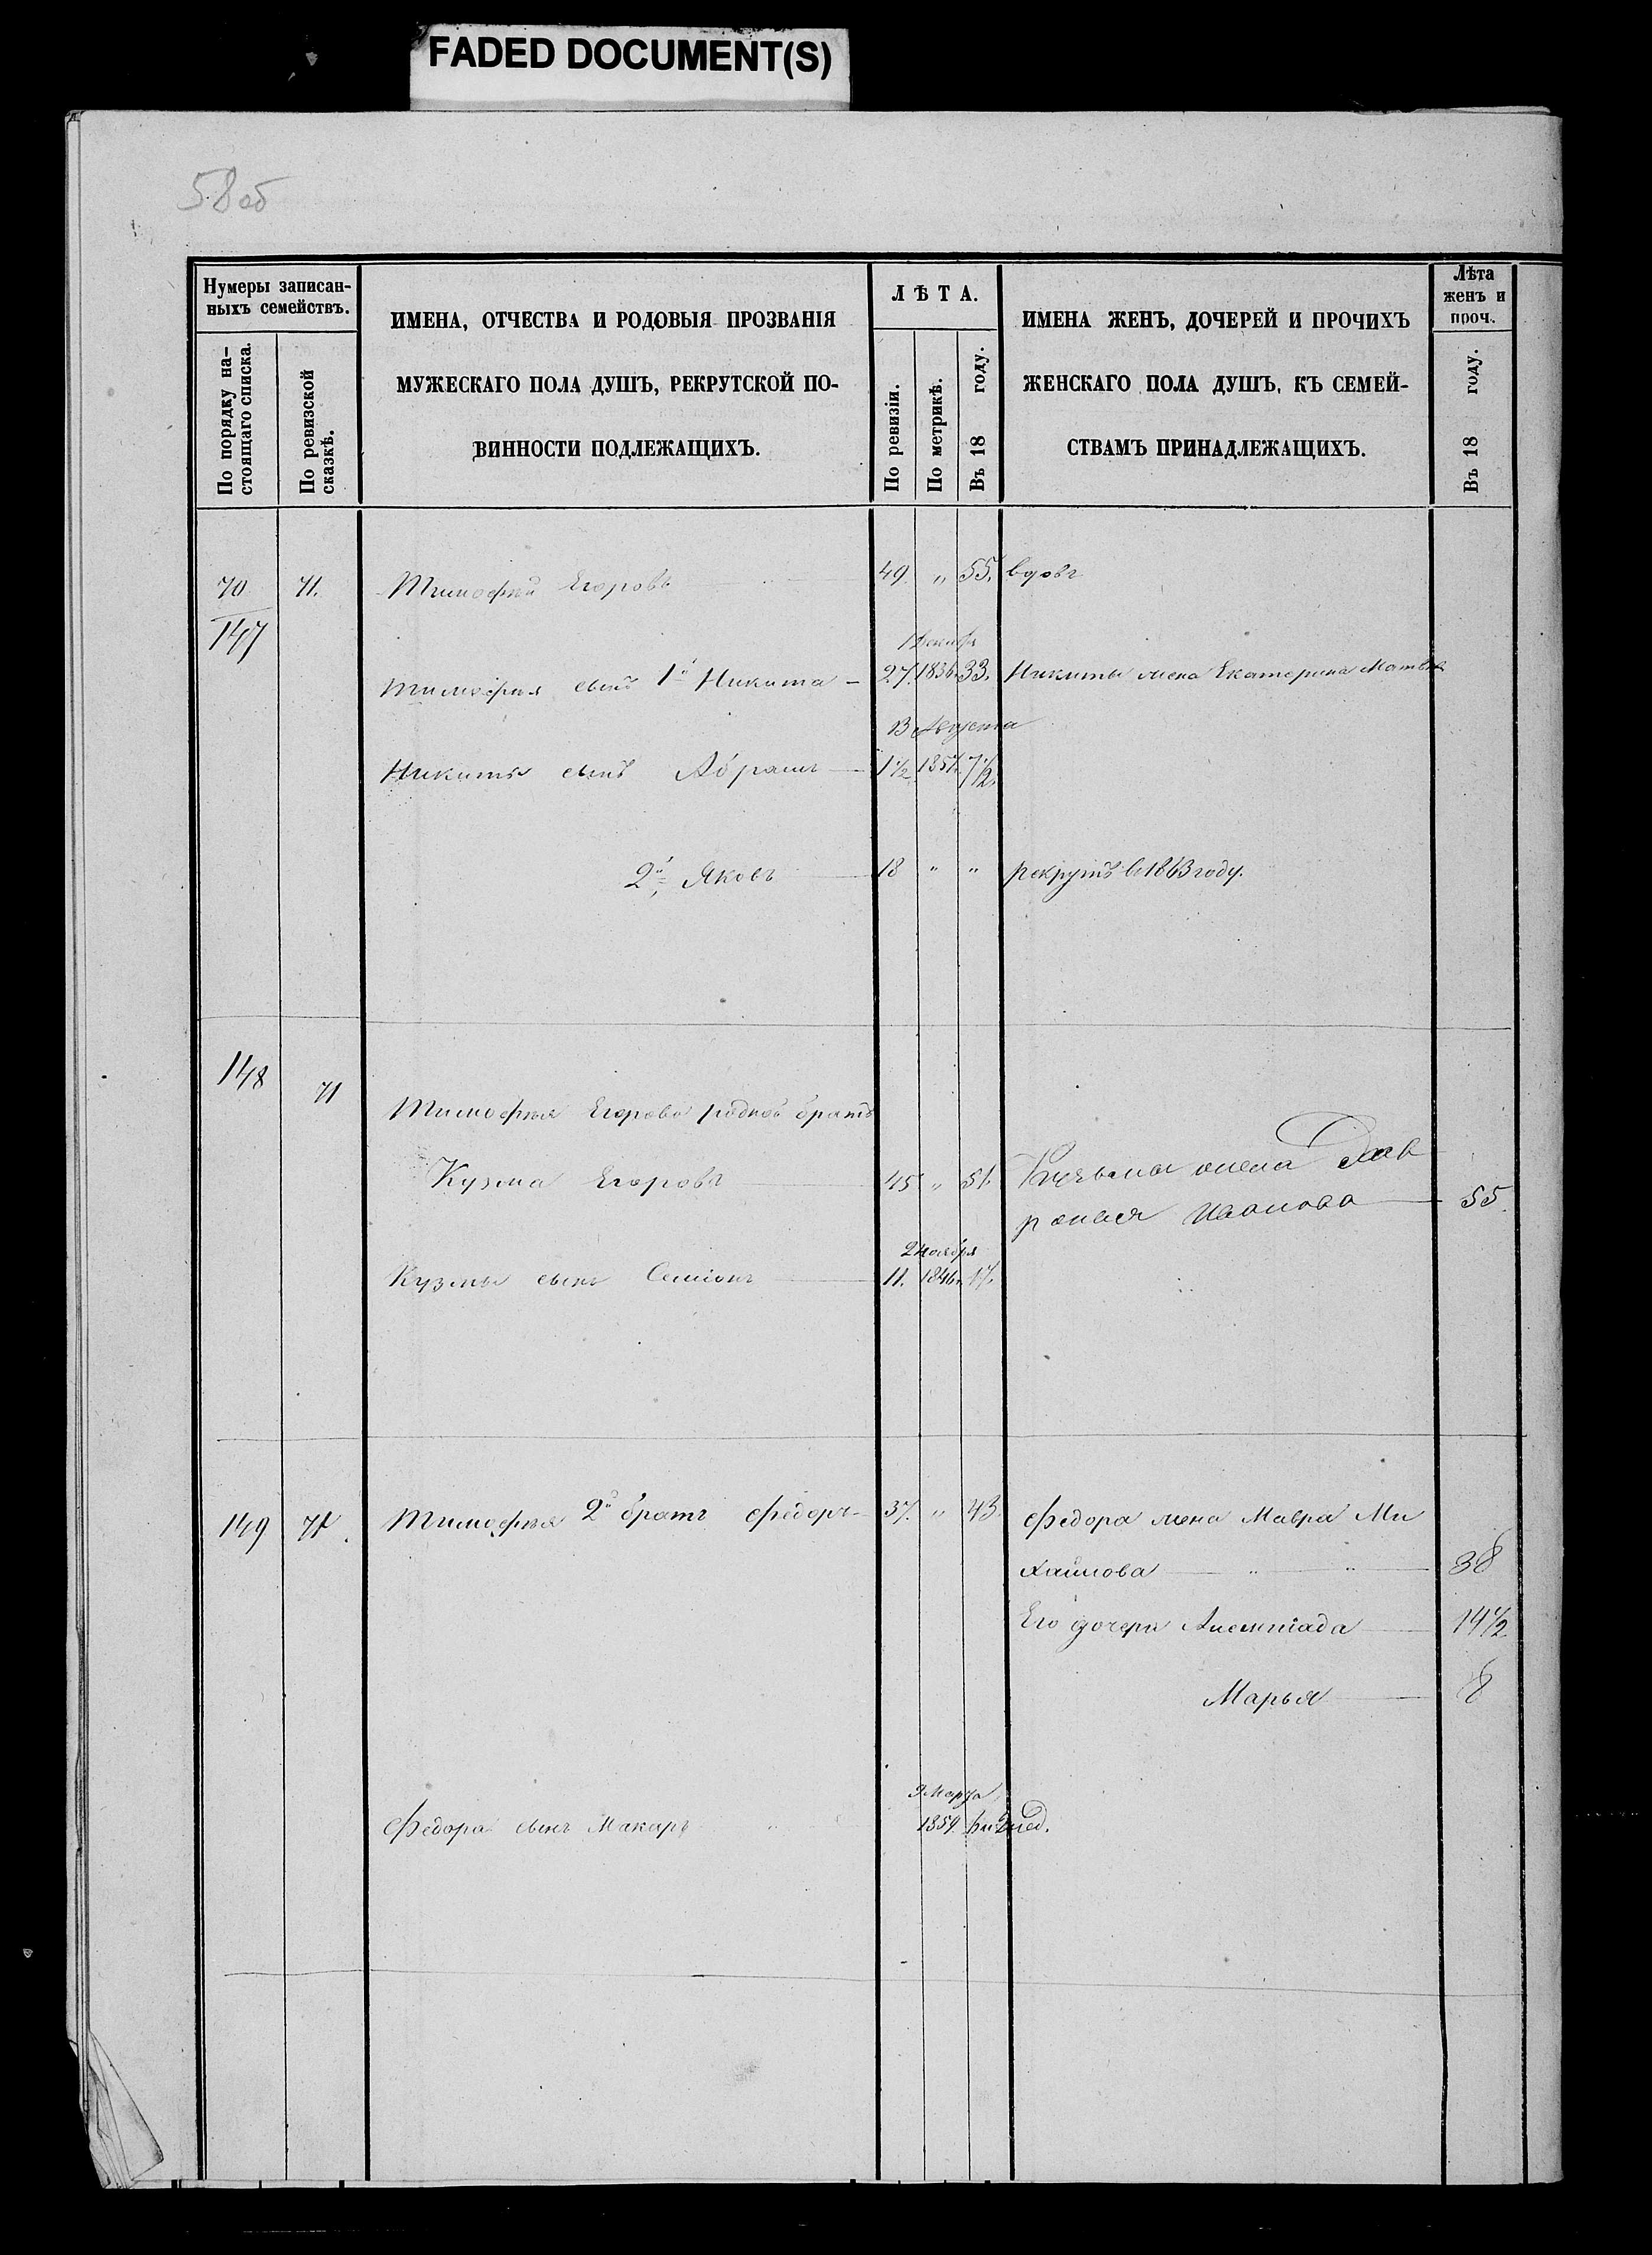 FADED DOCUMENT(S)
58 об
Нумеры записан-
ныхъ семействъ.
По порядку на-
стоящаго списка.
По ревизской
сказкѣ.
ИМЕНА, ОТЧЕСТВА И РОДОВЫЯ ПРОЗВАНІЯ
МУЖЕСКАГО ПОЛА ДУШЪ, РЕКРУТСКОЙ ПО-
ВИННОСТИ ПОДЛЕЖАЩИХЪ.
ЛѢТА.
По ревизіи.
По метрикѣ.
Въ 18 году.
ИМЕНА ЖЕНЪ, ДОЧЕРЕЙ И ПРОЧИХЪ
ЖЕНСКАГО ПОЛА ДУШЪ, КЪ СЕМЕЙ-
СТВАМЪ ПРИНАДЛЕЖАЩИХЪ.
Лѣта
женъ и
проч.
Въ 18 году.
70 71. Тимофѣй Егоровъ 49 " 55. вдовъ
147
Тимофѣя сынъ 1й Никита 27. 1836 33. Никиты жена Екатерина
13 Августа
Никиты сынъ Абрамъ 1½ 1857 7½
2й Яковъ 18 " " рекрутъ в 1863 году.
148 71
Тимофѣя Егорова родной братъ
Кузма Егоровъ 45 " 51. Кузьмы жена Фав
ронья Иванова 55.
2 Ноября
Кузмы сынъ Семіонъ 11. 1846 17.
149 71. Тимофѣя 2й братъ Федоръ 37. " 43. Федора жена Мавра Ми
хайлова " " 38
Его дочери Алемпіада 14½
Марья 8
9 Марта
Федора сынъ Макаръ 1859